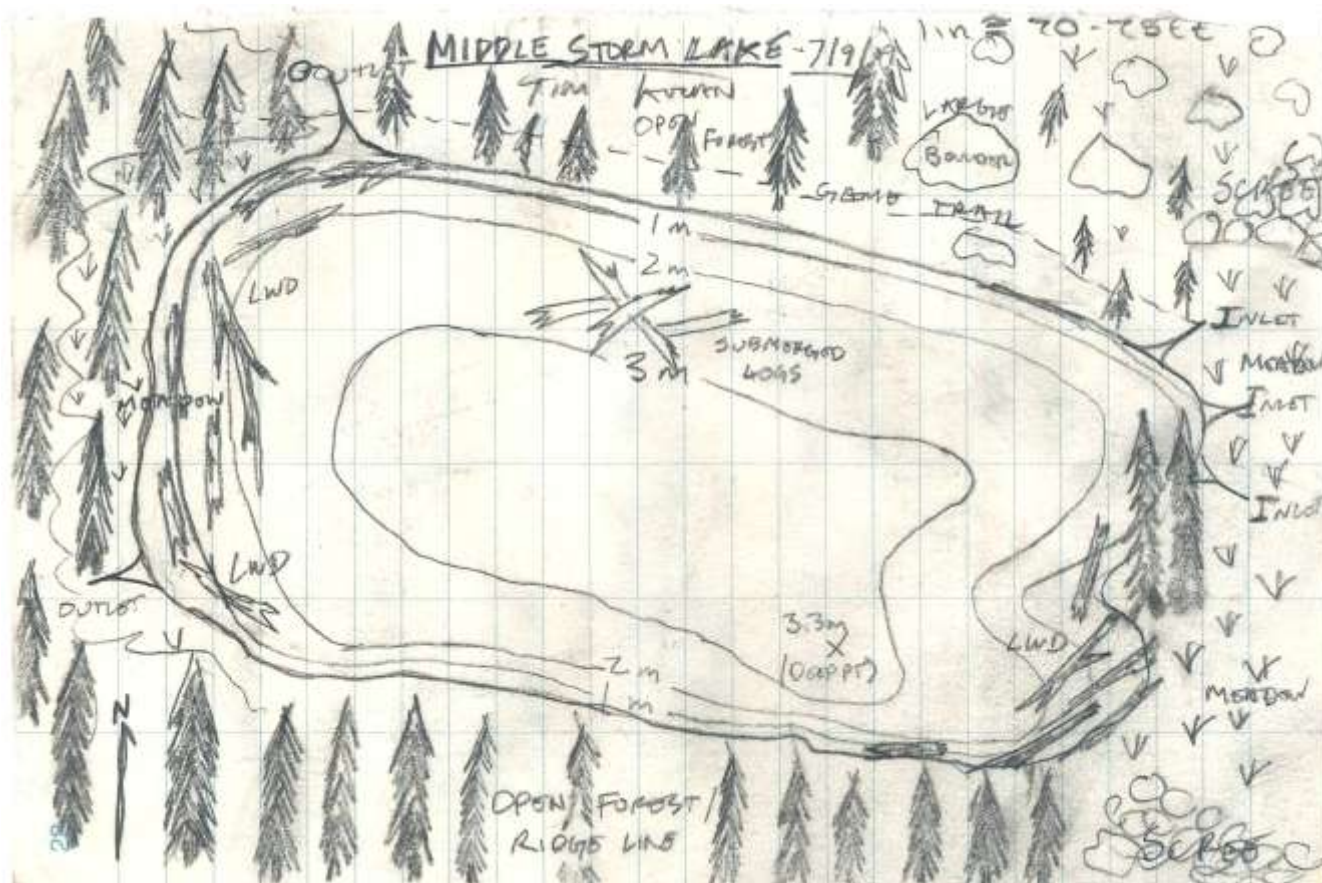 MIDDLE STORM LAKE - 7/9/
1in ≅ 70-75ft
OUTLET
TIM
OPEN
FOREST
LARGE
BOULDER
SCREE
GAME TRAIL
1m
2m
LWD
INLET
SUBMERGED
LOGS
3m
MEADOW
INLET
MEADOW
INLET
LWD
OUTLET
3.3m
X
(DEEP PT)
LWD
2m
1m
MEADOW
N
OPEN FOREST/
RIDGE LINE
SCREE
28